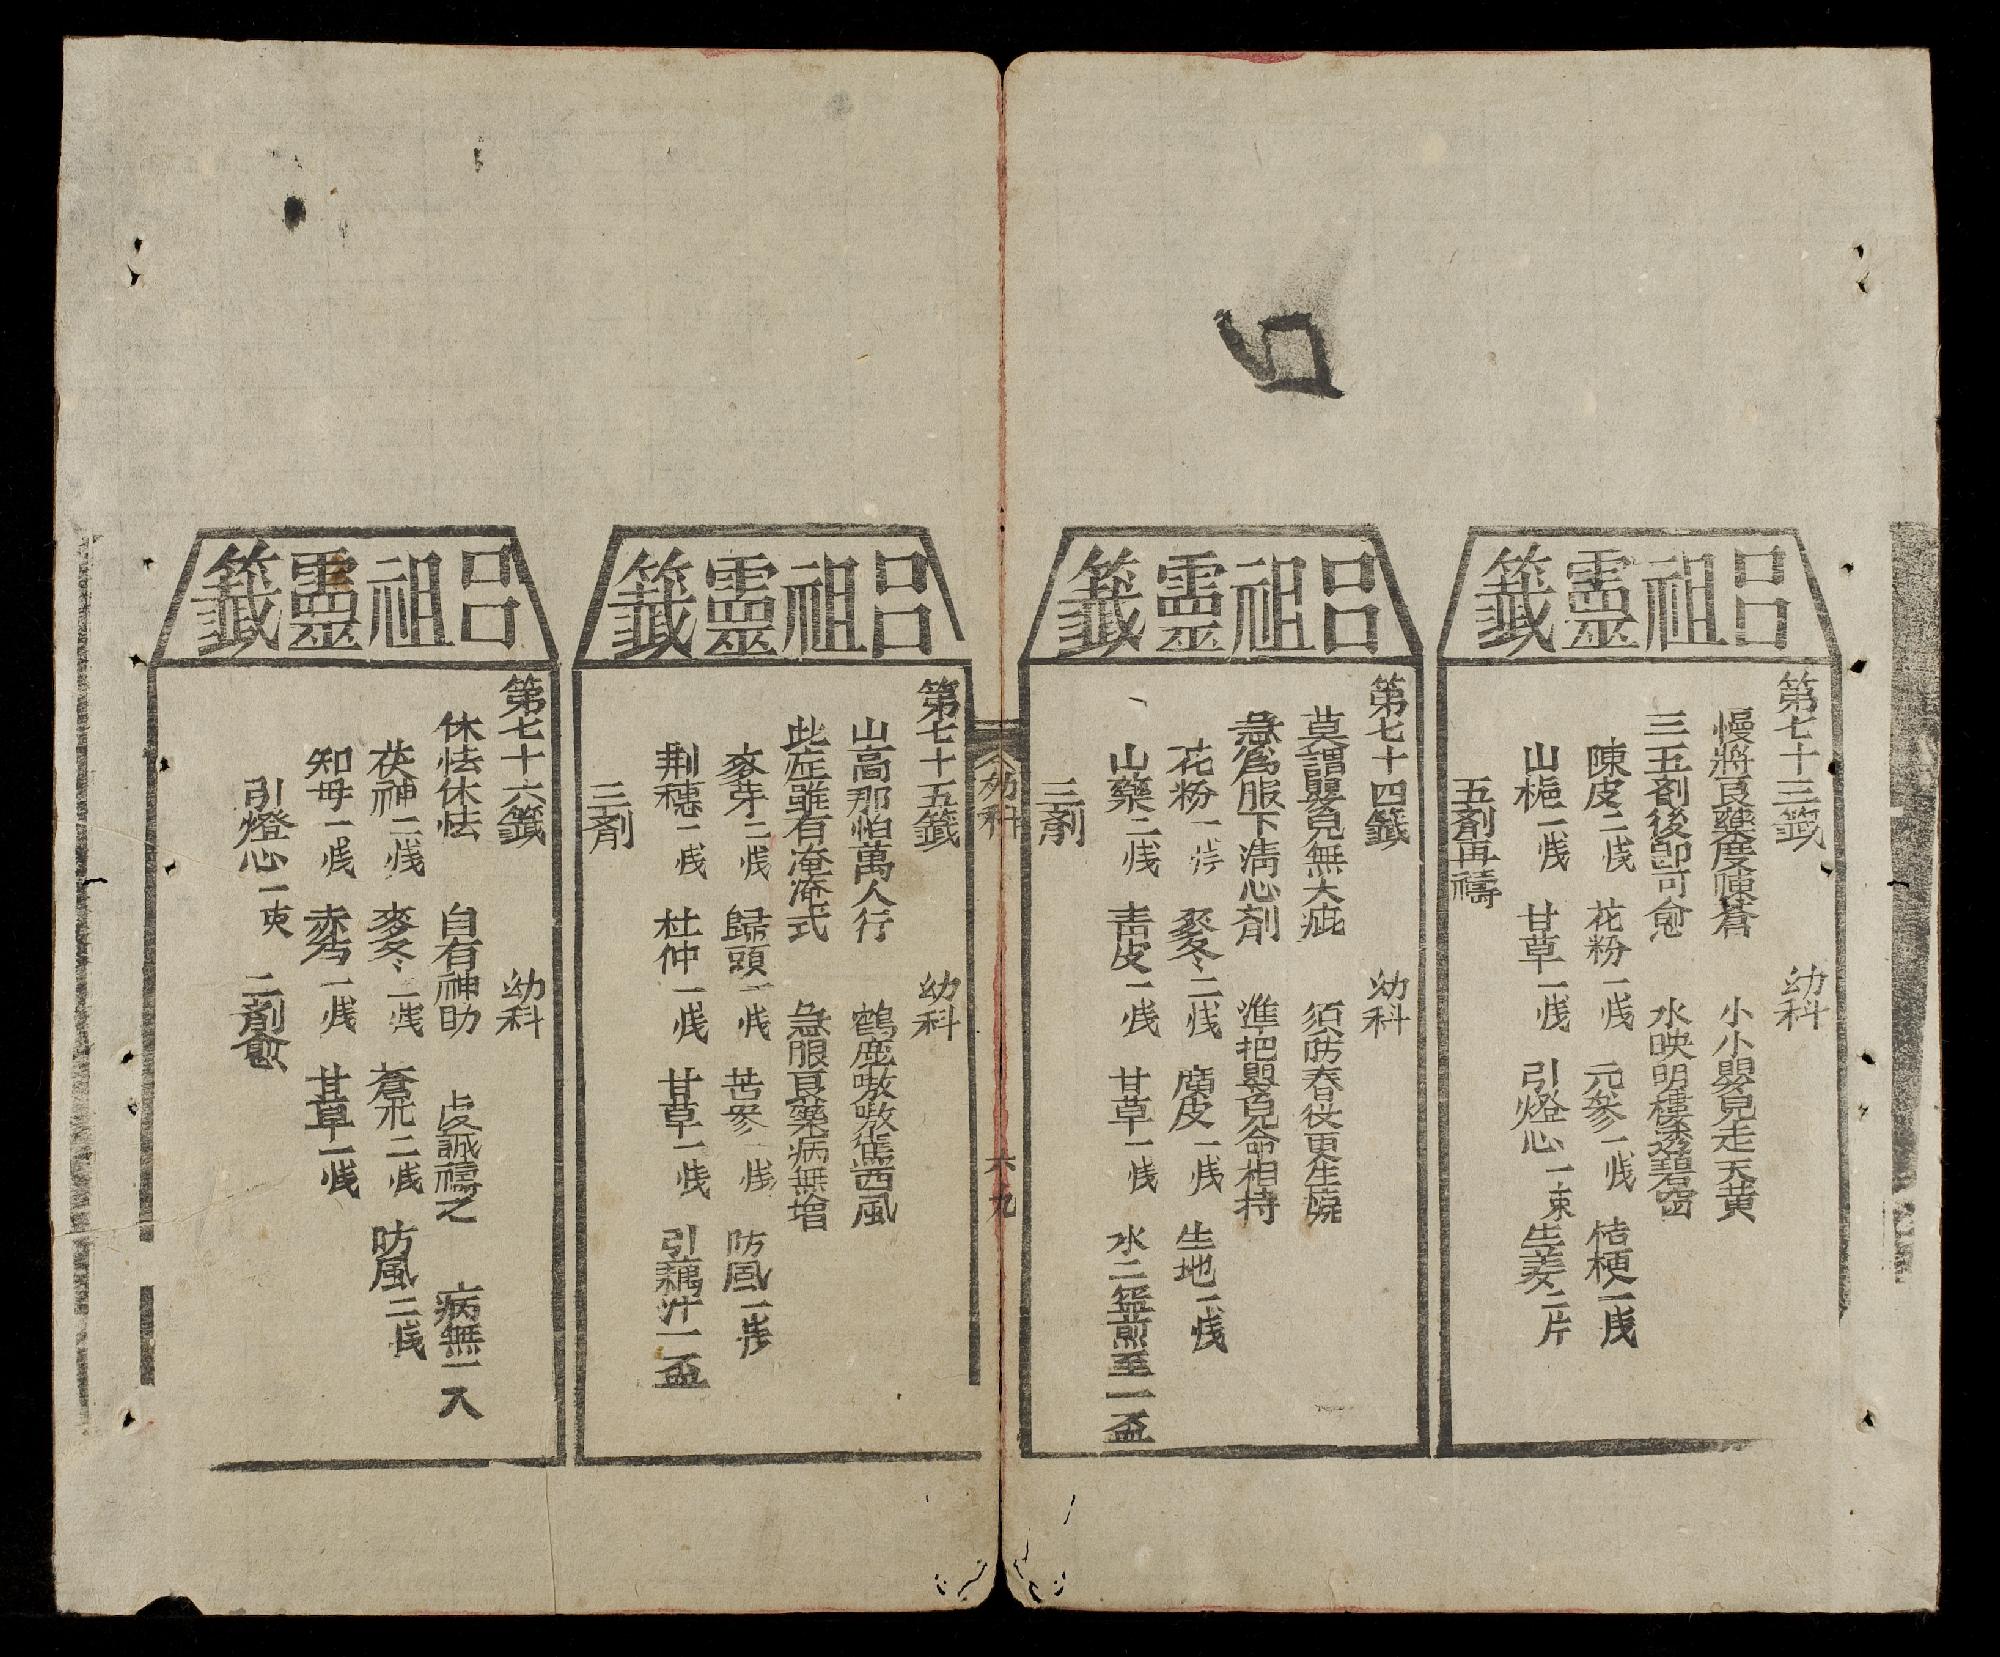 呂祖靈籤
第七十三籤 幼科
慢將良藥度陳蒼 小小嬰兒走天黄
三五剤後即可愈 水映明樓透碧窗
陳皮二戋 花粉一戋 元參一戋 桔梗一戋
山梔一戋 甘草一戋 引燈心一束 生姜二片
五剤再禱
呂祖靈籤
第七十四籤 幼科
莫謂嬰兒無大疵 須防春後更生
急爲服下清心剤 準把嬰兒命相持
花粉一戋 麥冬二戋 廣皮一戋 生地一戋
山藥二戋 青皮一戋 甘草一戋 水二盌煎至一盃
三剤
幼科
六九
呂祖靈籤
第七十五籤 幼科
山高那怕萬人行 鶴鹿嗷嗷嘗西風
此症雖有淹淹式 急服良藥病無增
麥芽二戋 歸頭一戋 苦參一戋 防風一戋
荆穗一戋 杜仲一戋 甘草一戋 引藕汁一盃
三剤
呂祖靈籤
第七十六籤 幼科
休怯休怯 自有神助 虔誠禱之 病無一入
茯神二戋 麥冬二戋 蒼朮二戋 防風二戋
知母一戋 赤芍一戋 甘草一戋
引燈心一束 二剤愈